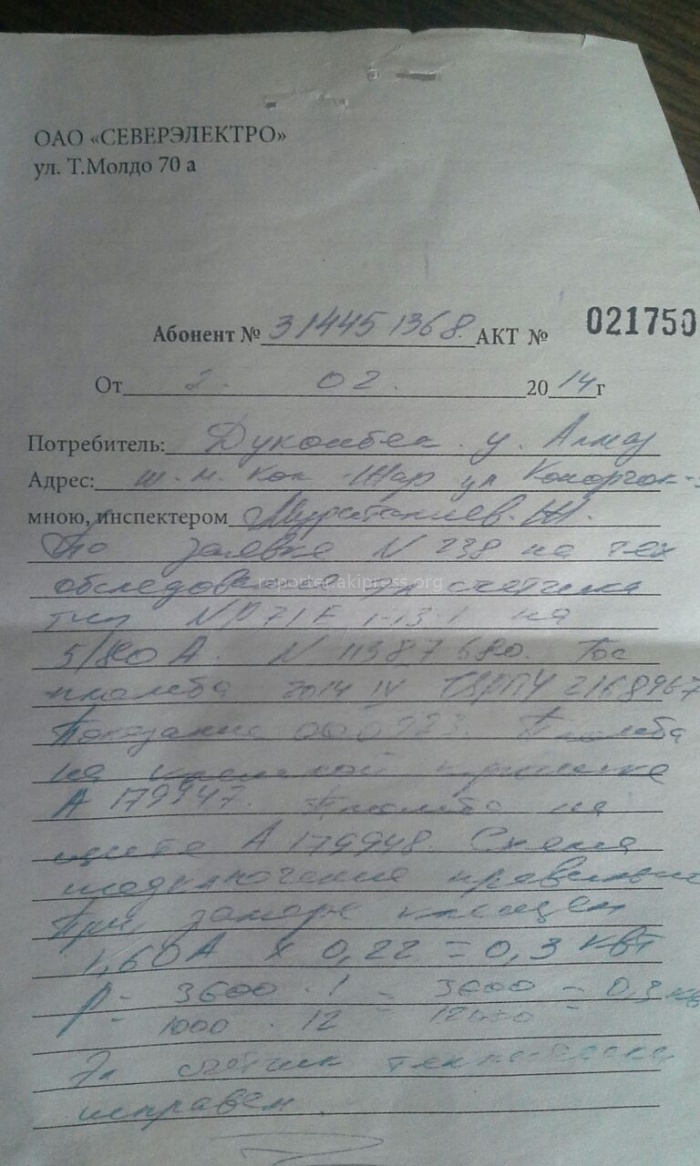 ОАО «СЕВЕРЭЛЕКТРО»
ул. Т.Молдо 70 а
Абонент № 314451368 АКТ № 021750
От 2. 02. 2014 г
Потребитель: у. Алмаз
Адрес: ж.м. Кок-Жар ул
мною, инспектором
По заявке N 238 на тех
обследование эл счетчика
reporter.akipress.org
тип NP71E 1-13-1 на
5/80 А. N 11387680. Гос
пломба 2014 IV 2168967
Показание 000923. Пломба
на клеммной крышке
А 179947. Пломба на
щите А 179948. Схема
подключения правильн
При замере клещем
1,60А х 0,22 = 0,3 квт
P = 3600 · 1 = 3600 = 0,3 кв
1000 · 12 12000
Эл счетчик технически
исправен.